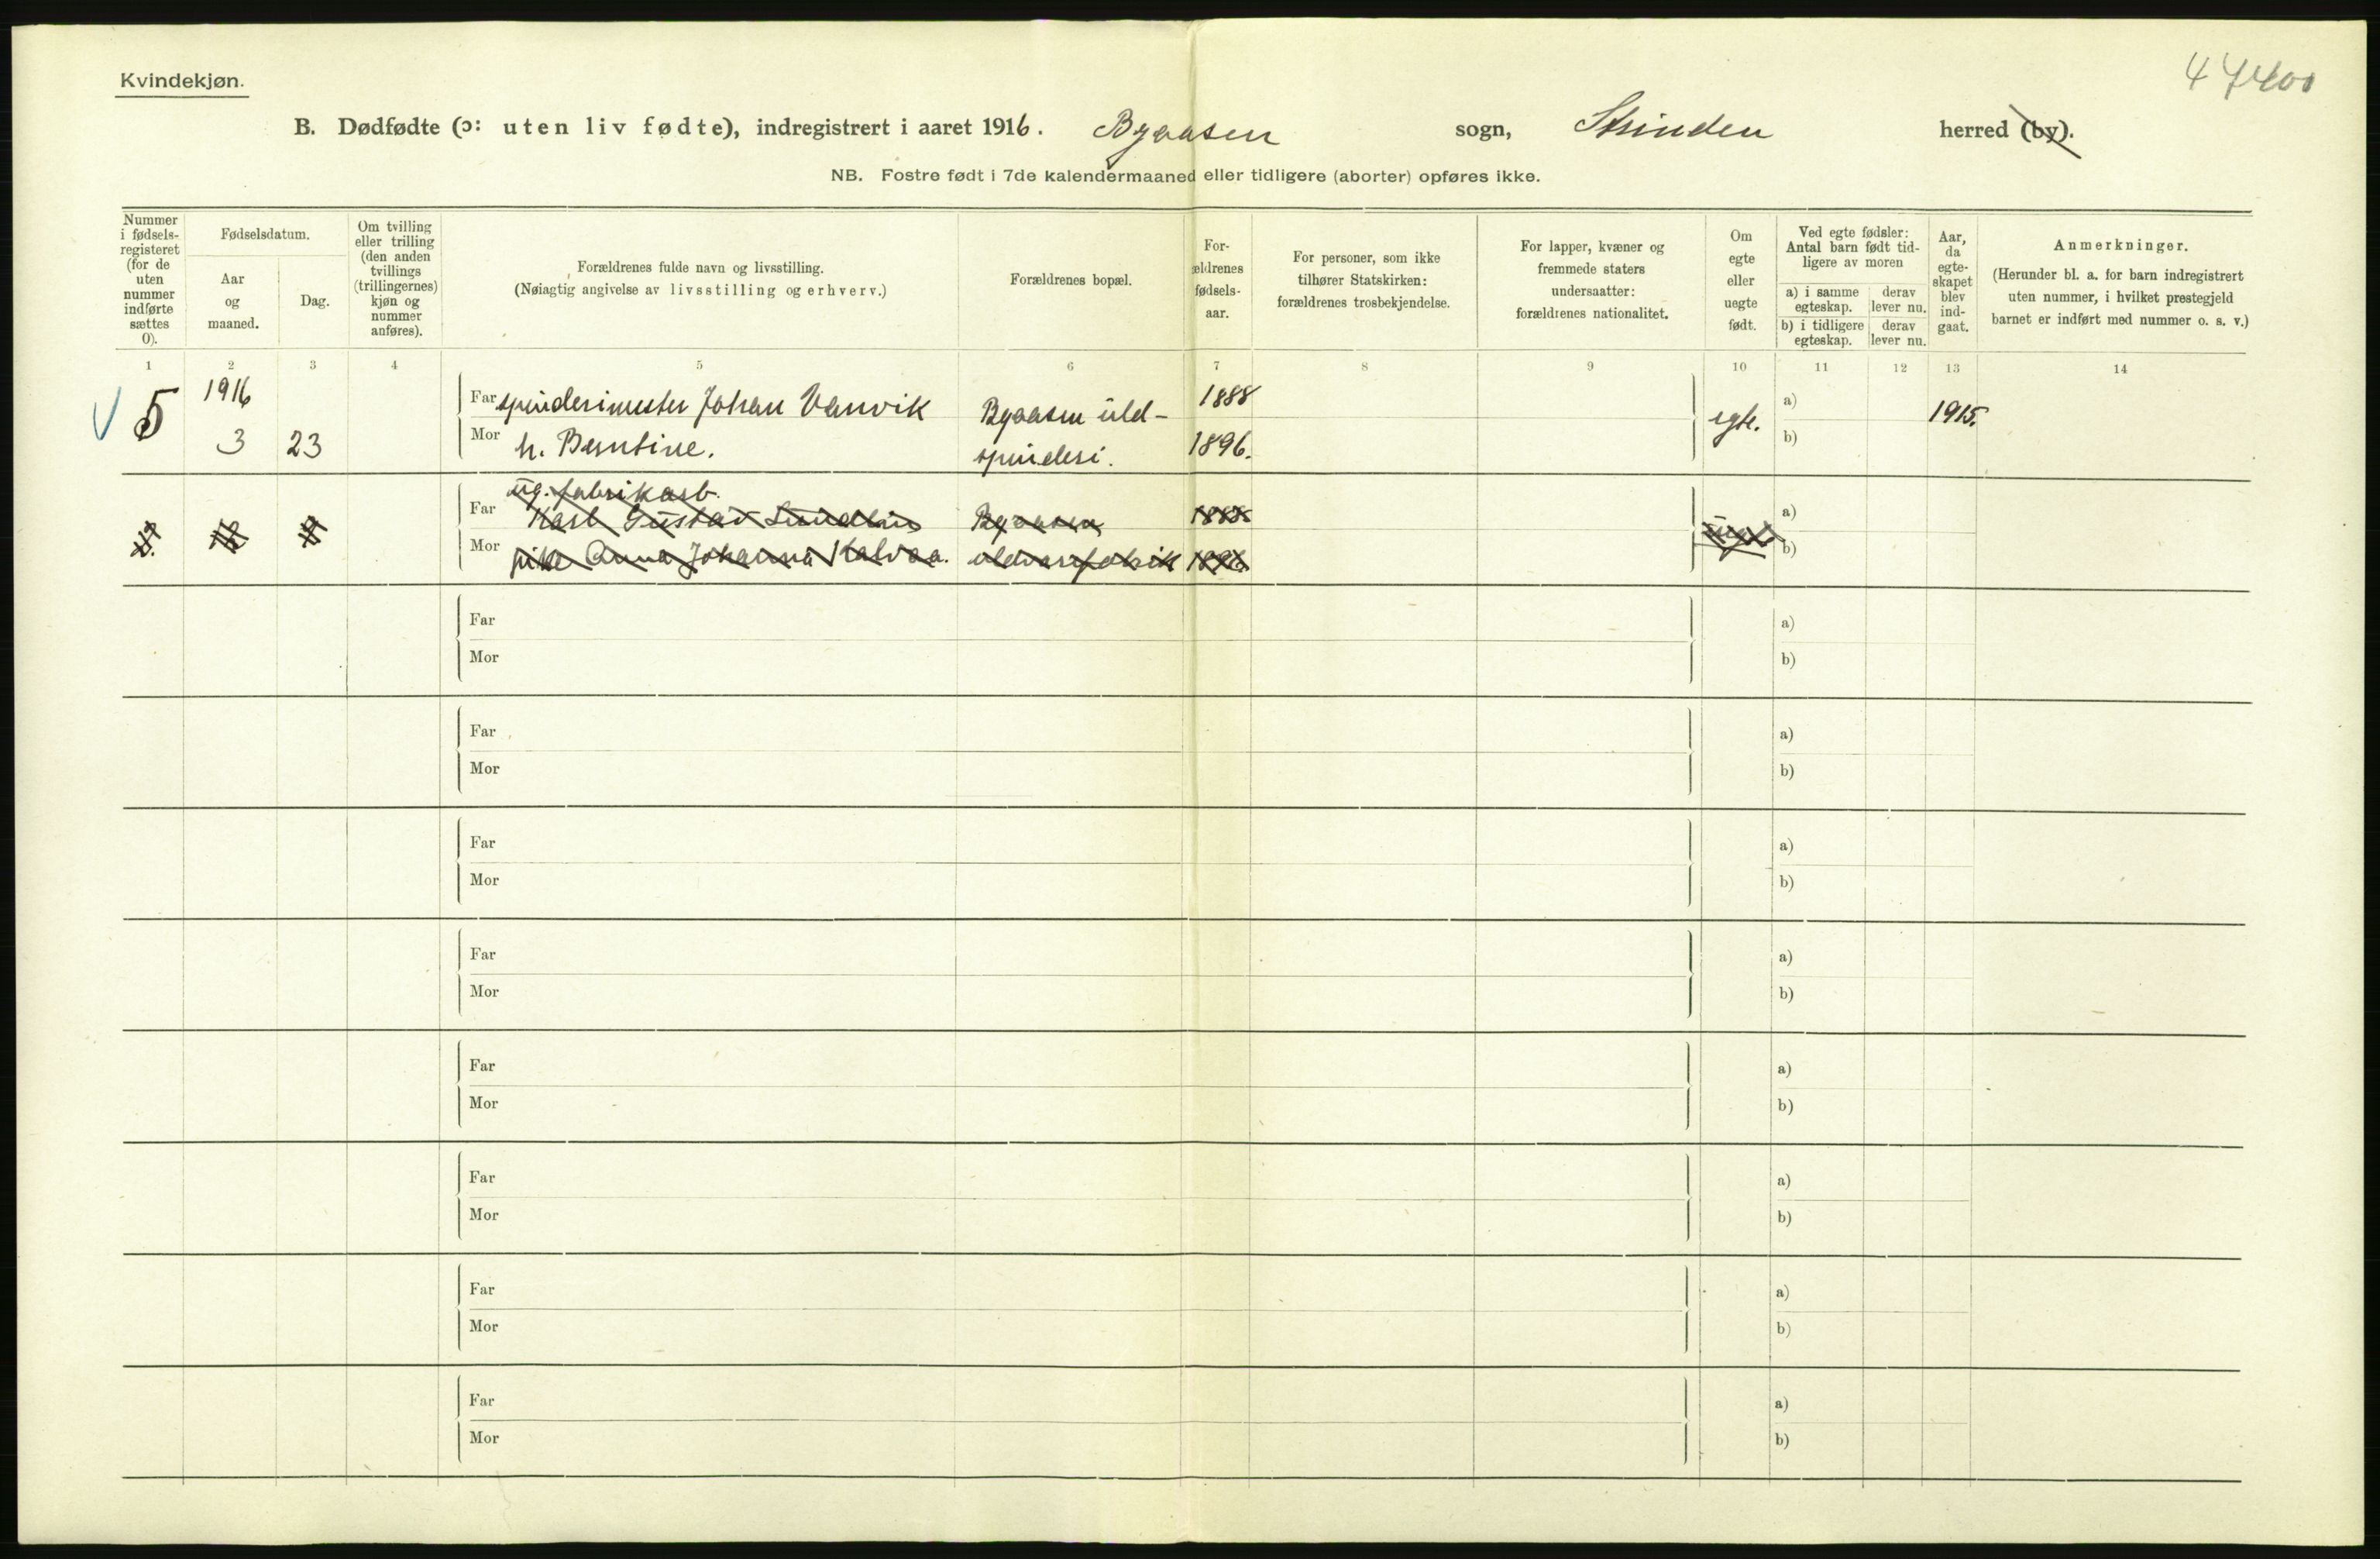 Kvindekjøn.
B. Dødfødte (ɔ: uten liv fødte), indregistrert i aaret 1916. Byaasen sogn, Strinden herred (by).
NB. Fostre født i 7de kalendermaaned eller tidligere (aborter) opføres ikke.
Nummer i fødsels-registeret (for de uten nummer indførte sættes 0).
Fødselsdatum.
Aar og maaned.
Dag.
Om tvilling eller trilling (den anden tvillings (trillingernes) kjøn og nummer anføres).
Forældrenes fulde navn og livsstilling.
(Nøiagtig angivelse av livsstilling og erhverv.)
Forældrenes bopæl.
For-ældrenes fødsels-aar.
For personer, som ikke tilhører Statskirken: forældrenes trosbekjendelse.
For lapper, kvæner og fremmede staters undersaatter: forældrenes nationalitet.
Om egte eller uegte født.
Ved egte fødsler: Antal barn født tid-ligere av moren
a) i samme egteskap.
derav lever nu.
b) i tidligere egteskap.
derav lever nu.
Aar, da egte-skapet blev ind-gaat.
Anmerkninger.
(Herunder bl. a. for barn indregistrert uten nummer, i hvilket prestegjeld barnet er indført med nummer o. s. v.)
1 2 3 4 5 6 7 8 9 10 11 12 13 14
5 1916
3 23
Far spinderimester Johan Vanvik Byaasen uld- 1888
Mor h. Berntine. spinderi. 1896.
egte. a) b) 1915.
ug. fabrikarb.
Far Karl Gustav Byaasen 1888
Mor pike Anna Johanna Kalvaa. uldvarefabrik 1896
a)
b)
Far a)
Mor b)
Far a)
Mor b)
Far a)
Mor b)
Far a)
Mor b)
Far a)
Mor b)
Far a)
Mor b)
Far a)
Mor b)
Far a)
Mor b)